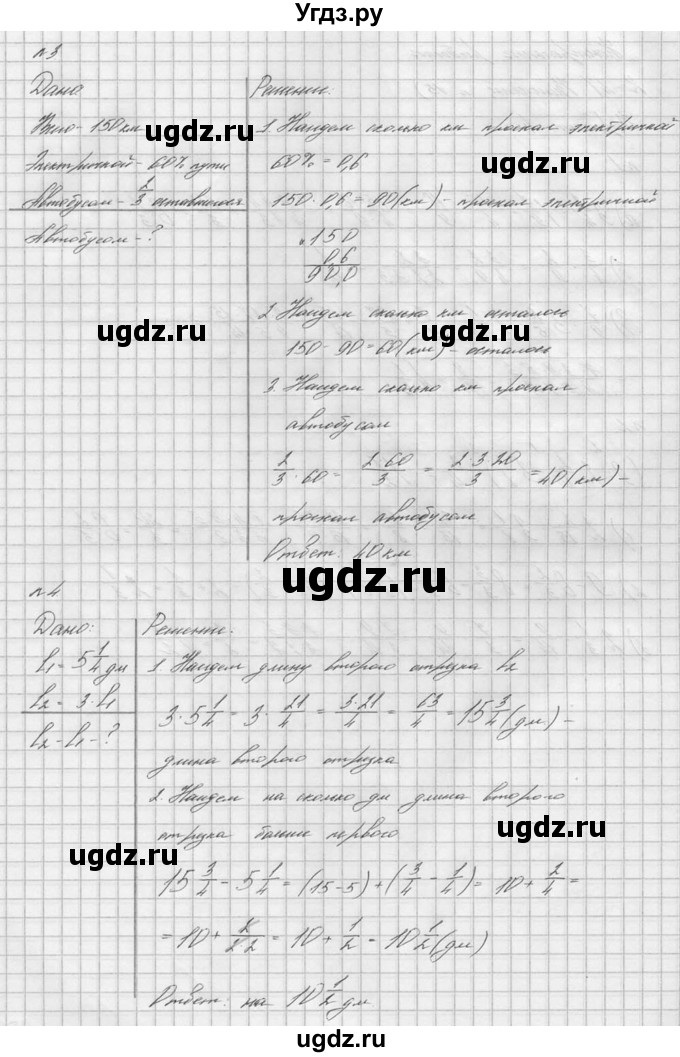 Угдз.ру
№3
Дано
Всго - 150 км
Электричкой - 60% пути
Автобусом - 2/3 оставшегося
Автобусом - ?
Решение:
1. Найдем сколько км проехал электричкой
60% = 0,6
150 · 0,6 = 90 (км) - проехал электричкой
× 150
0,6
90,0
2 Найдем сколько км осталось
150 - 90 = 60 (км) - осталось
3. Найдем сколько км проехал
автобусом
2/3 · 60 = 2 60/3 = 2 3 20/3 = 40 (км) -
проехал автобусом
Ответ: 40 км
№4
Дано:
l₁ = 5 1/4 дм
l₂ = 3 · l₁
l₂ - l₁ - ?
Решение:
1 Найдем длину второго отрезка l₂
3 · 5 1/4 = 3 · 21/4 = 3·21/4 = 63/4 = 15 3/4 (дм) -
длина второго отрезка
2. Найдем на сколько дм длина второго
отрезка больше первого
15 3/4 - 5 1/4 = (15-5) + (3/4 - 1/4) = 10 + 2/4 =
= 10 + 2/2·2 = 10 + 1/2 = 10 1/2 (дм)
Ответ: на 10 1/2 дм
ugdz.ru
ugdz.ru
ugdz.ru
ugdz.ru
ugdz.ru
ugdz.ru
ugdz.ru